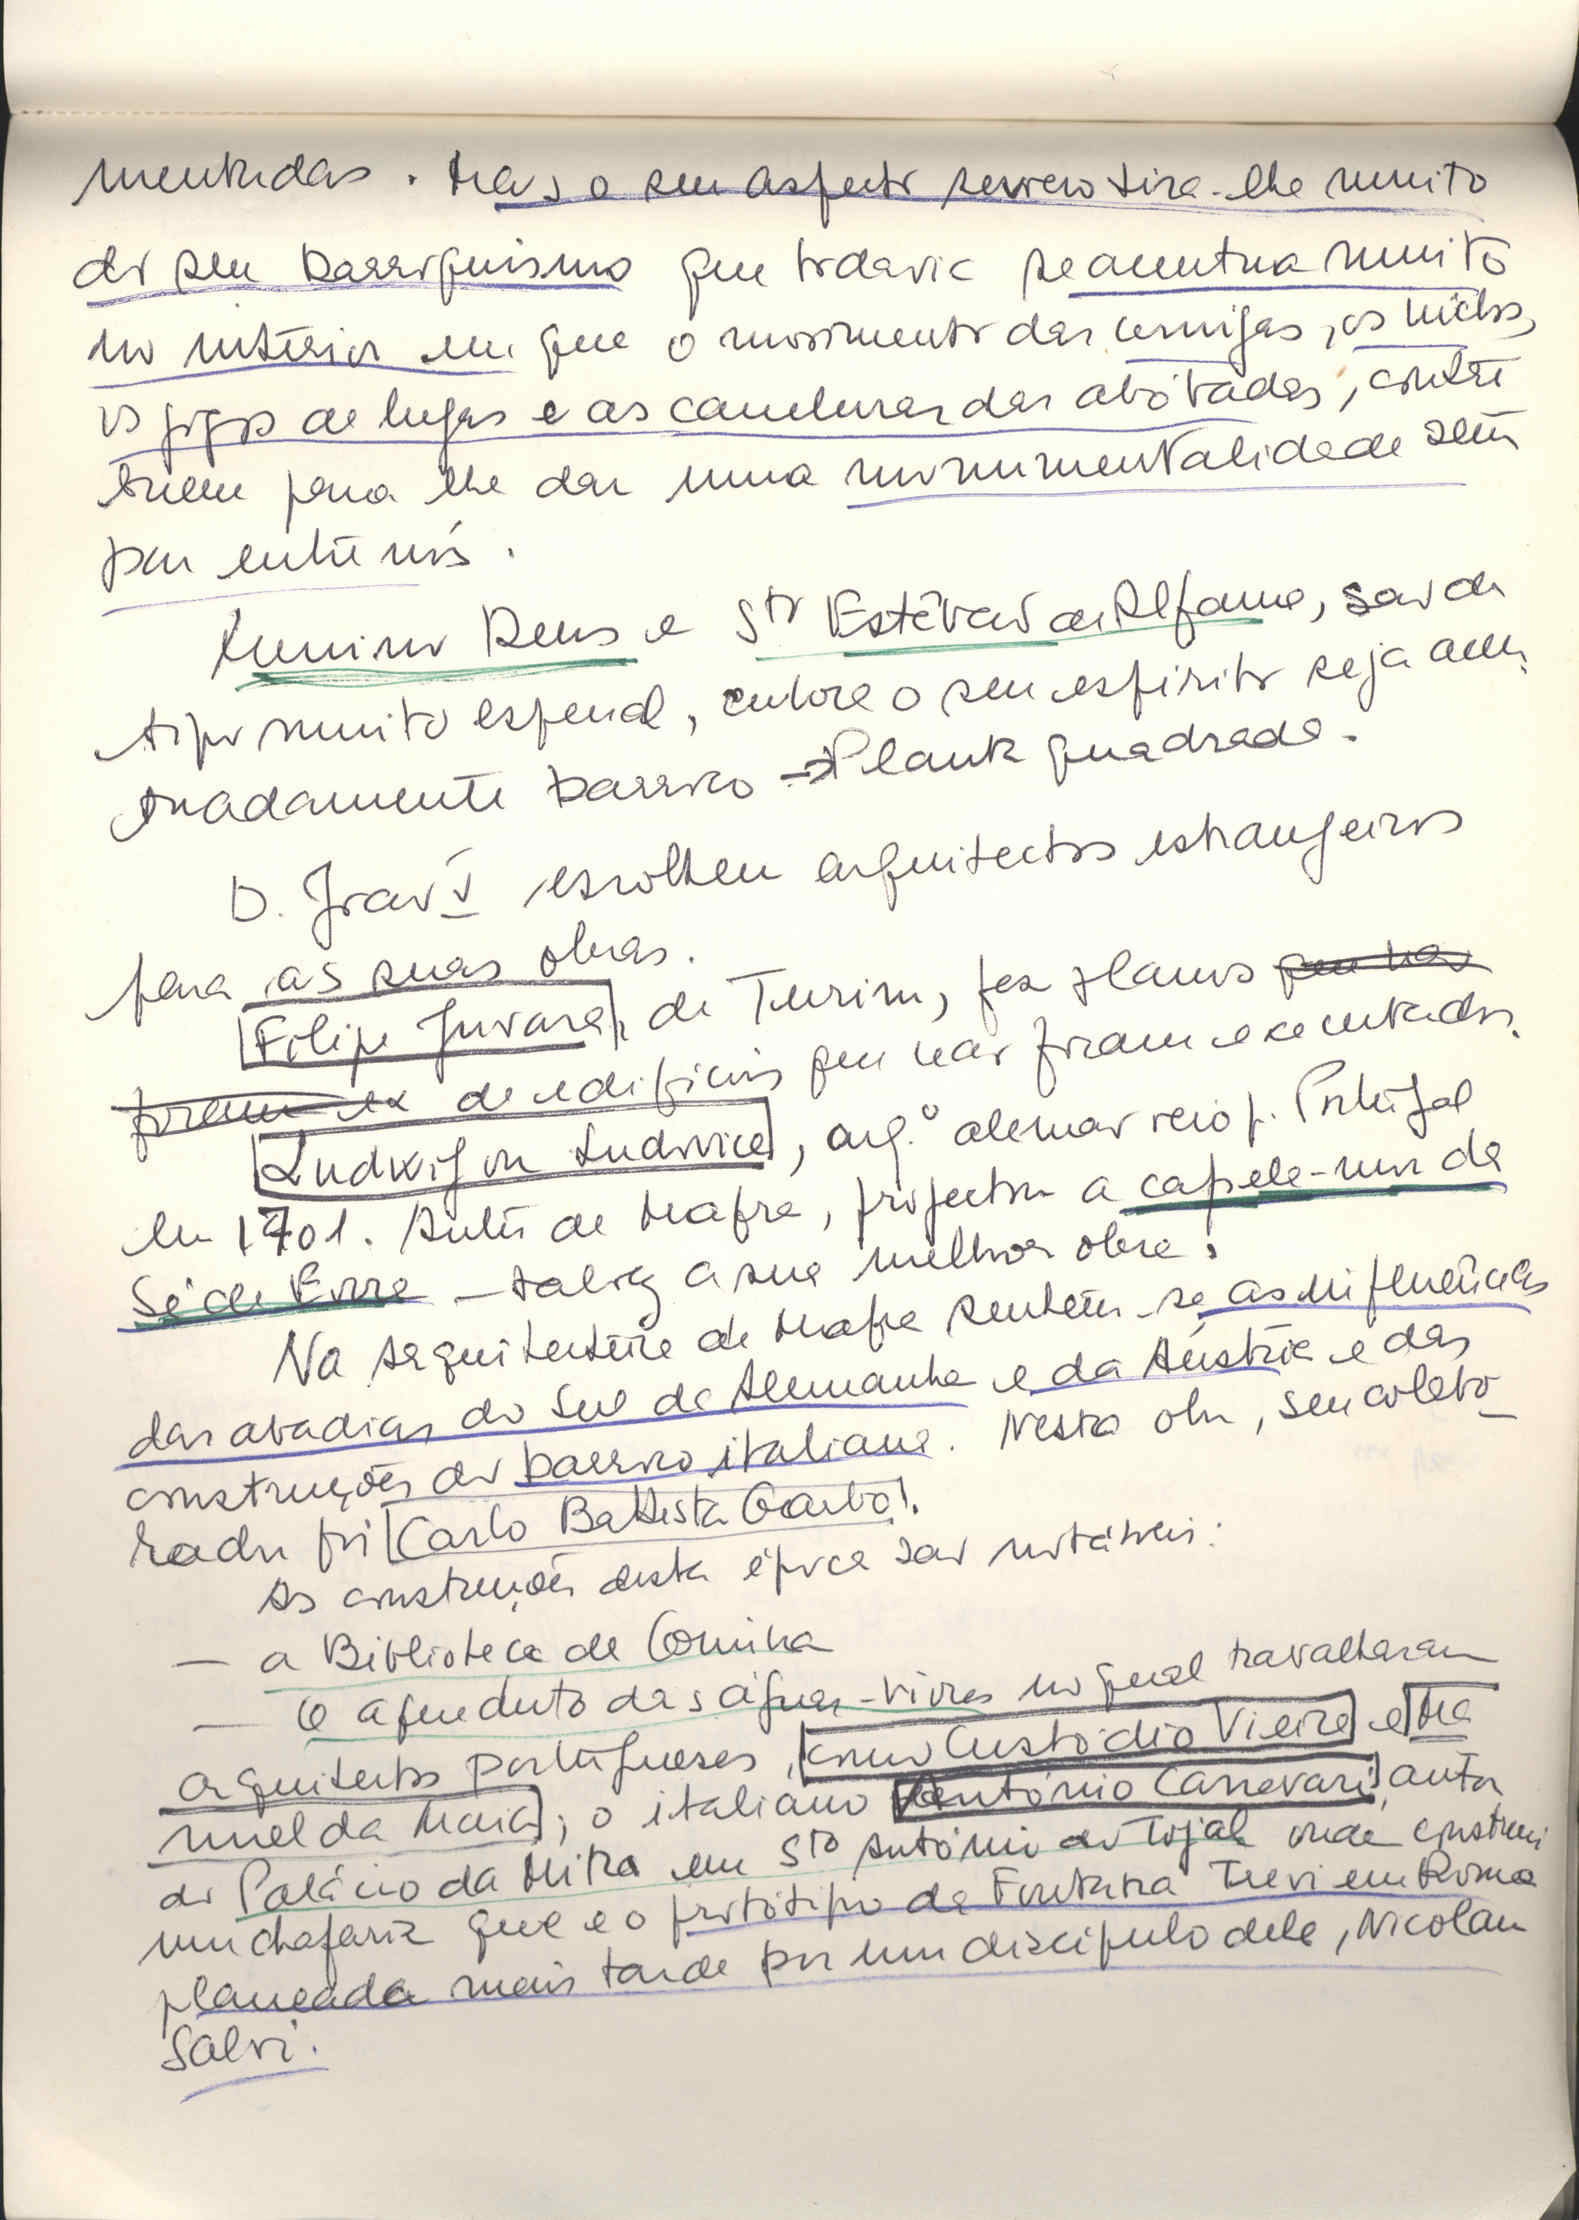 mentadas. Mas o seu aspecto severo tira-lhe muito
do seu barroquismo que todavia se acentua muito
no interior em que o movimento das cornijas, os nichos,
os jogos de luzes e as caneluras das abóbadas, contri
buem para lhe dar uma monumentalidade sem
par entre nós.
Menino Deus e Stº Estêvão de Alfama, são de
tipo muito especial, embora o seu espírito seja acen
tuadamente barroco → Planta quadrada.
D. João V escolheu arquitectos estrangeiros
para as suas obras.
Filipe Juvara, de Turim, fez planos que não
foram ex de edifícios que não foram executados.
Ludwig ou Ludovice, arq.º alemão veio p. Portugal
em 1701. Antes de Mafra, projectou a capela-mor da
Sé de Évora – talvez a sua melhor obra.
Na arquitectura de Mafra sentem-se as influências
das abadias do Sul da Alemanha e da Áustria e das
construções do barroco italiano. Nesta obra, seu colabo
rador foi Carlo Battista Garbo.
As construções desta época são notáveis:
– a Biblioteca de Coimbra
– O aqueduto das águas-livres no qual trabalharam
arquitectos portugueses, como Custódio Vieira e Ma
nuel da Maia; o italiano António Canevari, autor
do Palácio da Mitra em Stº António do Tojal onde construiu
um chafariz que é o protótipo da Fontana Trevi em Roma
planeada mais tarde por um discípulo dele, Nicolau
Salvi.